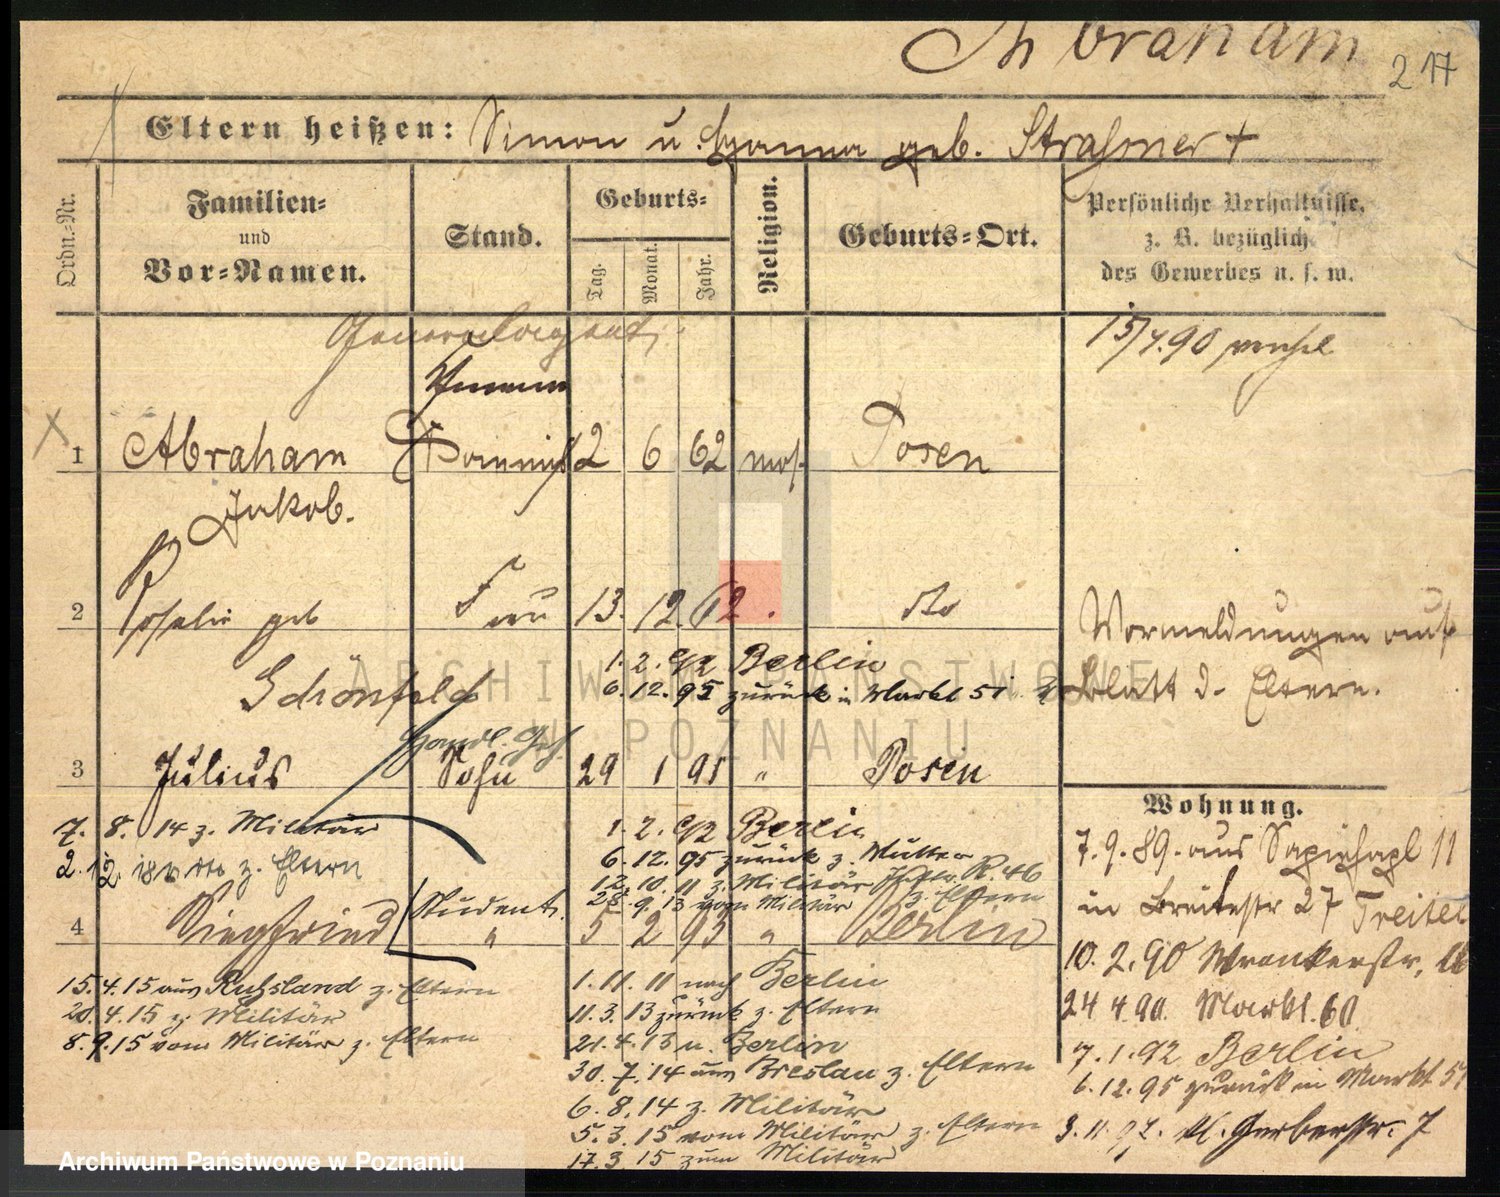 Abraham
217
Eltern heißen: Simon u. Hanna geb. Strahmer +
Ordn.-Nr.
Familien- und Vor-Namen.
Stand.
Geburts-
Tag. Monat. Jahr.
Religion.
Geburts-Ort.
Persönliche Verhältnisse, z. B. bezüglich des Gewerbes u. s. w.
Generalagent
15/4.90
1 Abraham Commis 2 6 62 mos. Posen
Jakob.
2 Rosalie geb Frau 13. 12. 62. do
Schönfeld
1. 2. 92 Berlin
6. 12. 95 zurück in Markt 51
Vormeldungen auf
Blatt d. Eltern.
Handl. Geh.
3 Julius Sohn 29 1 91 " Posen
7. 8. 14 z. Militär
z. Eltern
1. 2. 92 Berlin
6. 12. 95 zurück z. Mutter
12. 10. 11 z. Militär R. 46
28. 9. 13 vom Militär z. Eltern
4 Siegfried Student. " 5 2 93 " Berlin
15. 4. 15 aus Russland z. Eltern
20. 4. 15 z. Militär
8. 9. 15 vom Militär z. Eltern
1. 11. 11 nach Berlin
11. 3. 13 zurück z. Eltern
21. 4. 13 n. Berlin
30. 7. 14 aus Breslau z. Eltern
6. 8. 14 z. Militär
5. 3. 15 vom Militär z. Eltern
17. 3 15 zum Militär
Wohnung.
7. 9. 89. aus Sapiehapl 11
in Breitestr 27 Treitel
10. 2. 90 Wronkerstr.
24 4. 90. Markt. 60
7. 1. 92 Berlin
6. 12. 95 zurück in Markt 51
3. 11. 97. Kl. Gerberstr. 7
ARCHIWUM PAŃSTWOWE
W POZNANIU
Archiwum Państwowe w Poznaniu